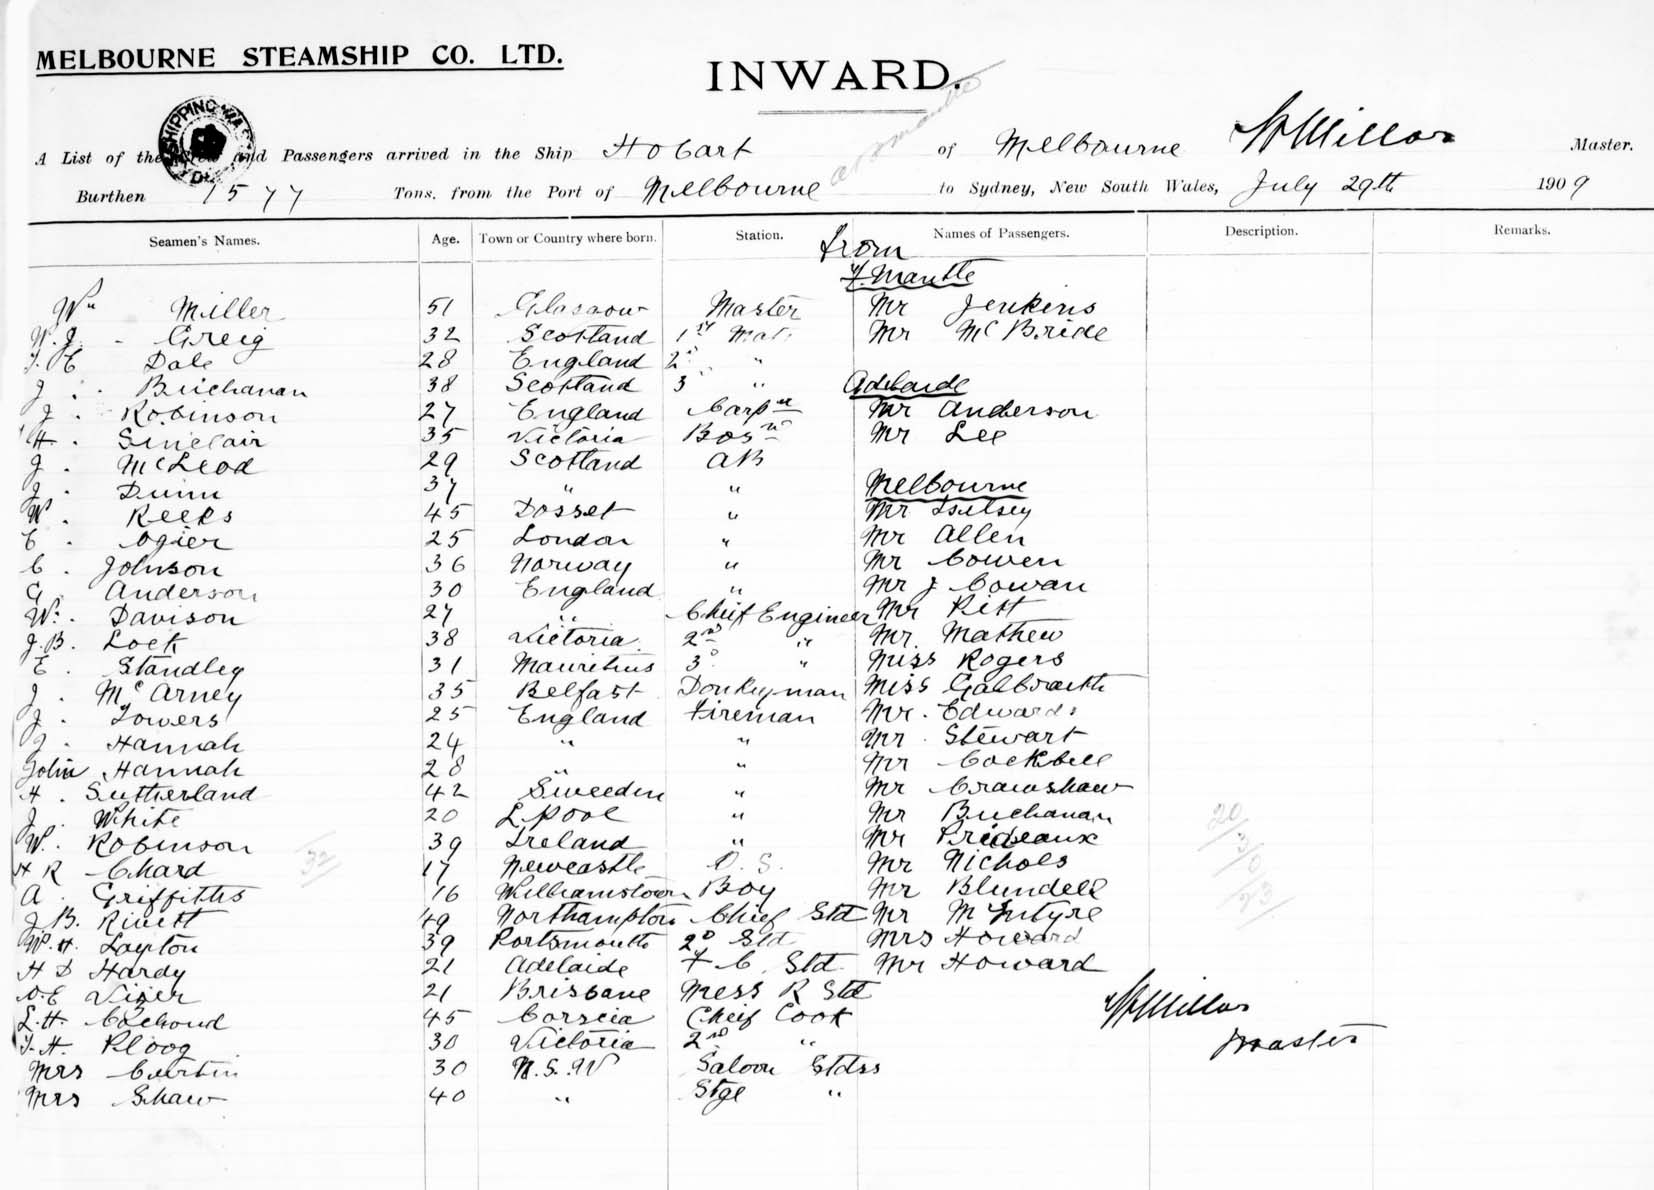 MELBOURNE STEAMSHIP CO. LTD.
INWARD.
A List of the Crew and Passengers arrived in the Ship Hobart of Melbourne W Millar Master.
Burthen 1577 Tons, from the Port of Melbourne to Sydney, New South Wales, July 29th 1909
Seamen's Names. Age. Town or Country where born. Station. Names of Passengers. Description. Remarks.
from
F. Mantle
Wm Miller 51 Glasgow Master Mr Jenkins
W. J. Greig 32 Scotland 1st Mate Mr McBride
T. E Dale 28 England 2nd "
J. Buchanan 38 Scotland 3 " Adelaide
J. Robinson 27 England Carpr Mr Anderson
H. Sinclair 35 Victoria Bosn Mr Lee
J. McLeod 29 Scotland AB
J. Dunn 37 " " Melbourne
W. Reeks 45 Dosset " Mr
E. Ogier 25 London " Mr Allen
C. Johnson 36 Norway " Mr Cowen
G. Anderson 30 England " Mr J Cowan
W. Davison 27 " Cheif Engineer Mr Pitt
J. B. Lock 38 Victoria 2nd " Mr. Mathew
E. Standley 31 Mauretius 3d " Miss Rogers
J. McArney 35 Belfast Donkeyman Miss Galbraith
J. Towers 25 England Fireman Mr. Edwards
J. Hannah 24 " " Mr. Stewart
John Hannah 28 " " Mr Cockbell
H. Sutherland 42 Sweeden " Mr Crawshaw
J. White 20 L pool " Mr Buchanan 20
W. Robinson 39 Ireland " Mr Prideaux 3
32
H R Chard 17 Newcastle O. S. Mr Nichols 0
A. Griffiths 16 Williamstown Boy Mr Blundell 23
J B. Rivett 49 Northampton Chief Std Mr McIntyre
W. H. Layton 39 Portsmouth 2d Std Mrs Howard
H D Hardy 21 Adelaide F C Std Mr Howard
21 Brisbane Mess R Std
L. H. 45 Corscia Cheif Cook W Millar
T. H. Ploog 30 Victoria 2nd " Master
Mrs Curtin 30 N.S.W Saloon Stdss
Mrs Shaw 40 " Stge "